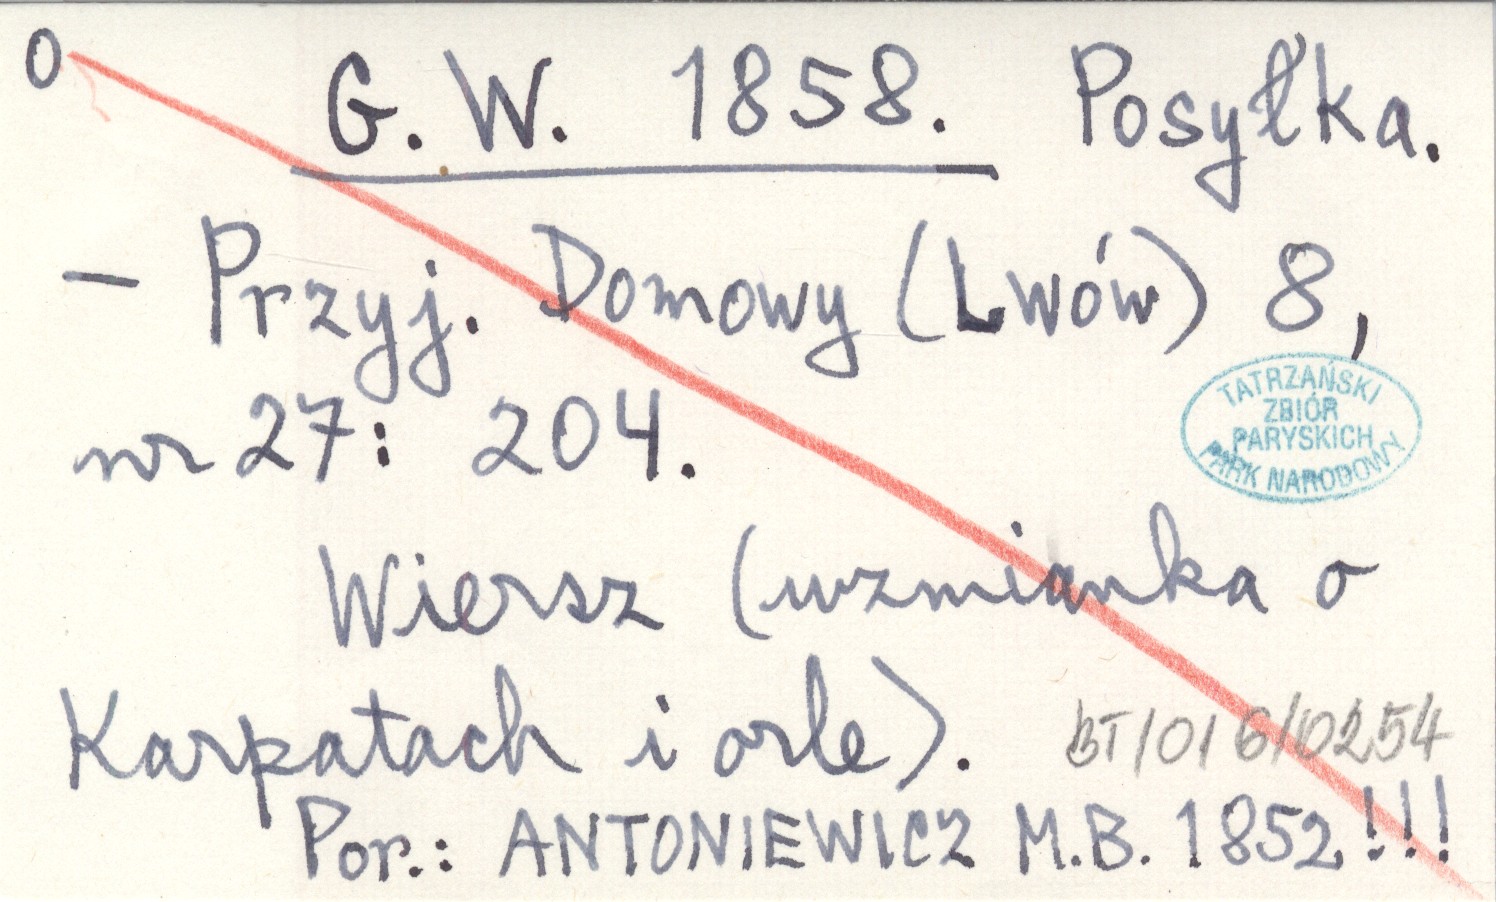 O G. W. 1858. Posyłka.
– Przyj. Domowy (Lwów) 8,
TATRZAŃSKI
ZBIÓR
PARYSKICH
PARK NARODOWY
nr 27: 204.
Wiersz (wzmianka o
Karpatach i orle).
BT/016/0254
Por.: ANTONIEWICZ M.B. 1852!!!